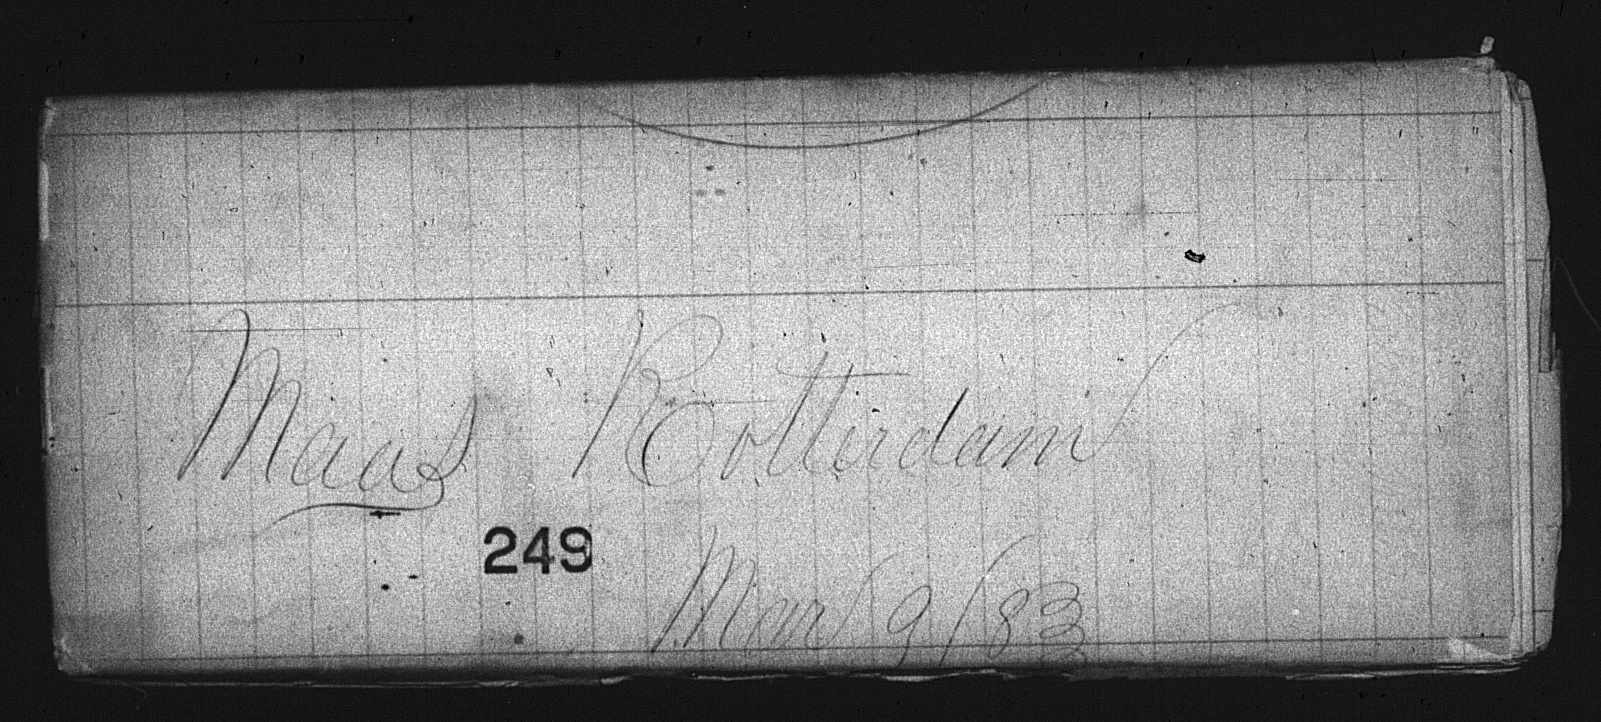 Maas Rotterdam
249
Mar 9/83